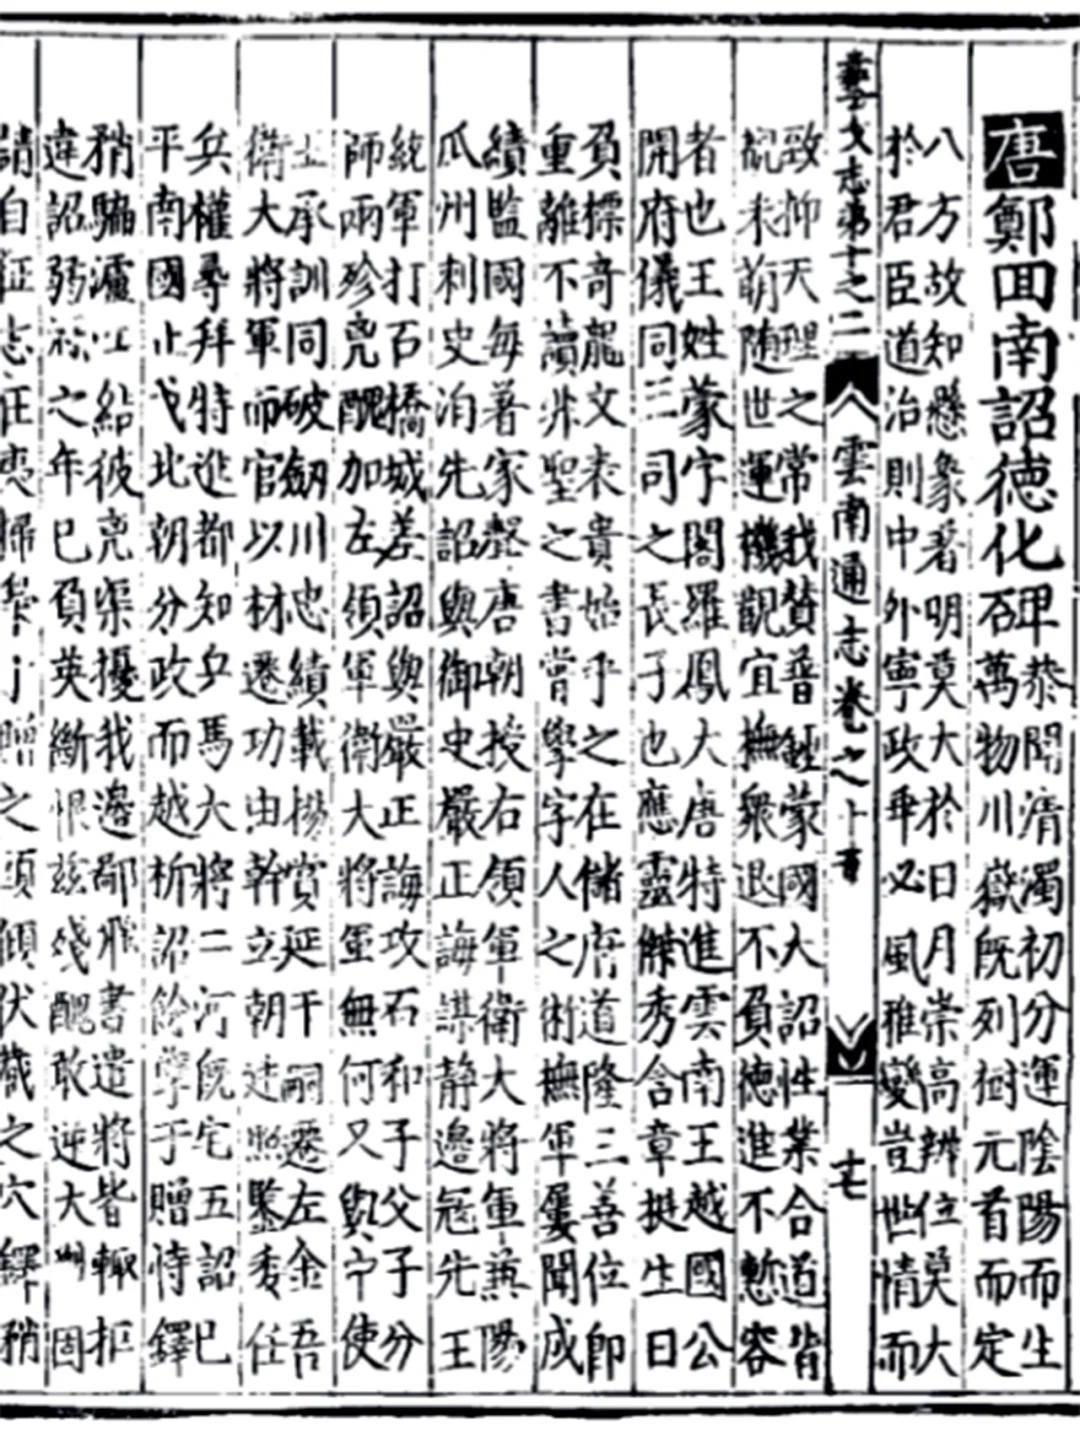 唐鄭囬南詔德化碑
恭聞清濁初分運陰陽而生
萬物川嶽既列樹元首而定
八方故知懸象著明莫大於日月崇高辨位莫大
於君臣道治則中外寧政乖必風雅變豈世情而
藝文志第十之二
雲南通志卷之十
十七
致抑天理之常我贊普鍾蒙國大詔性業合道皆
覩未萌随世運機觀宜撫衆退不負德進不慙容
者也王姓蒙字閣羅鳳大唐特進雲南王越國公
開府儀同三司之長子也應靈傑秀含章挺生日
負標奇龍文表貴始乎之在儲府道隆三善位即
重離不讀非聖之書嘗學字人之術撫軍屢聞成
績監國每著家聲唐朝授右領軍衛大將軍兼陽
瓜州刺史洎先詔與御史嚴正誨謀静邊寇先王
統軍打石橋城差詔與嚴正誨攻石和子父子分
師兩殄兇醜加左領軍衛大將軍無何又與中使
王承訓同破劒川忠績載揚賞延于嗣遷左金吾
衛大將軍而官以材遷功由幹立朝廷照鑒委任
兵權尋拜特進都知兵馬大將二河既宅五詔已
平南國止戈北朝分政而越析詔餘孽于贈恃鐸
矟騙瀘江結彼兇渠擾我邊鄙飛書遣將皆輙拒
違詔弱冠之年已負英斷恨兹殘醜敢逆大固
請自征志在夷掃梟于贈之頭傾伏藏之穴鐸矟